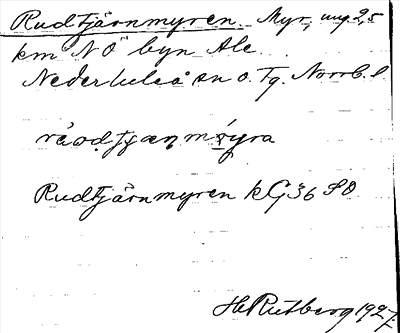 Rudtjärnmyren. Myr, ung 2,5
km N Ö byn Ale
Nederluleå sn o. Tg. Norrb. l.
Rudtjärnmyren kG 36 SO
H Rutberg 1927.